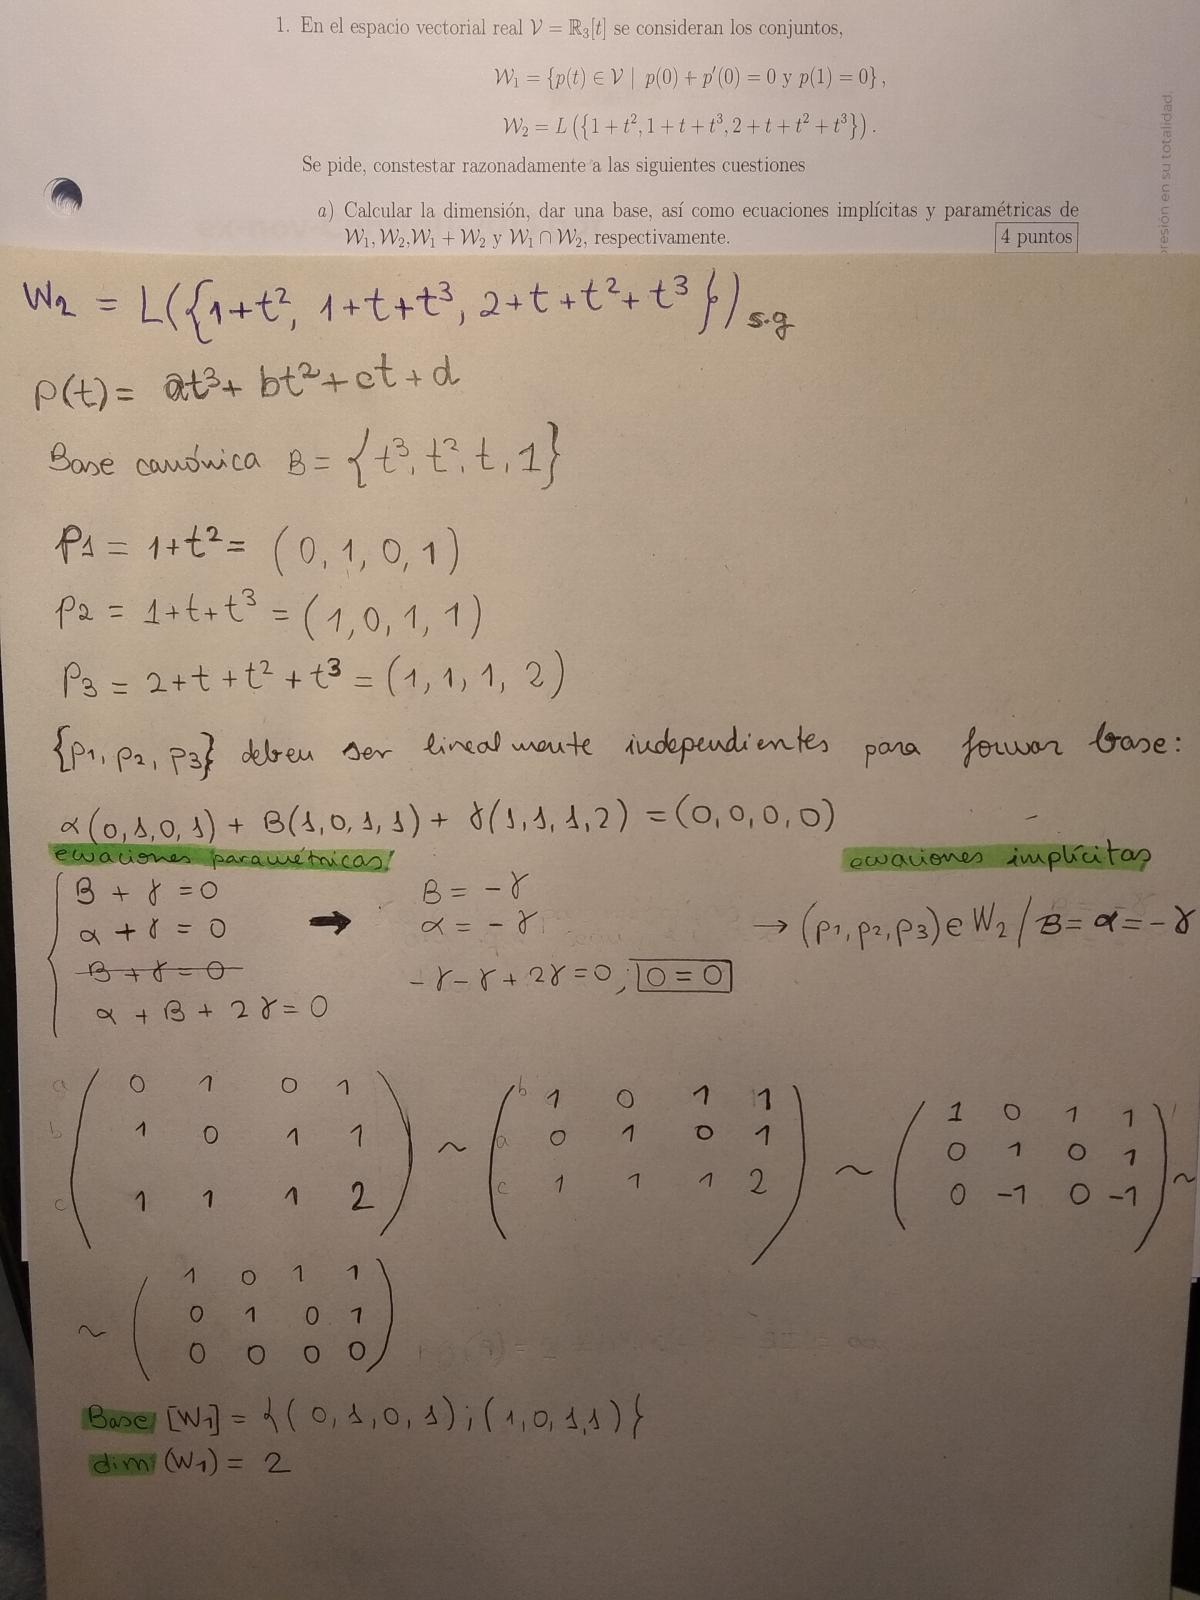 1. En el espacio vectorial real 𝒱 = ℝ₃[t] se consideran los conjuntos,
𝒲₁ = {p(t) ∈ 𝒱 | p(0) + p′(0) = 0 y p(1) = 0},
𝒲₂ = L ({1 + t², 1 + t + t³, 2 + t + t² + t³}).
Se pide, constestar razonadamente a las siguientes cuestiones
a) Calcular la dimensión, dar una base, así como ecuaciones implícitas y paramétricas de
𝒲₁, 𝒲₂,𝒲₁ + 𝒲₂ y 𝒲₁ ∩ 𝒲₂, respectivamente. 4 puntos
presión en su totalidad.
W2 = L({1+t², 1+t+t³, 2+t+t²+t³}) s.g
P(t) = at³ + bt² + ct + d
Base canónica B = {t³, t², t, 1}
P1 = 1+t² = (0, 1, 0, 1)
P2 = 1+t+t³ = (1, 0, 1, 1)
P3 = 2+t+t²+t³ = (1, 1, 1, 2)
{p1, p2, p3} deben ser linealmente independientes para formar base:
α(0,1,0,1) + B(1,0,1,1) + γ(1,1,1,2) = (0,0,0,0)
ecuaciones paramétricas! ecuaciones implícitas
B + γ = 0 B = -γ
α + γ = 0 → α = -γ → (p1, p2, p3) e W2 / B = α = -γ
B + γ = 0 -γ-γ+2γ=0; 0=0
α + B + 2γ = 0
a 0 1 0 1 b 1 0 1 1 1 0 1 1
b 1 0 1 1 ~ a 0 1 0 1 ~ 0 1 0 1 ~
c 1 1 1 2 c 1 1 1 2 0 -1 0 -1
1 0 1 1
~ 0 1 0 1
0 0 0 0
Base [W1] = {(0,1,0,1);(1,0,1,1)}
dim (W1) = 2